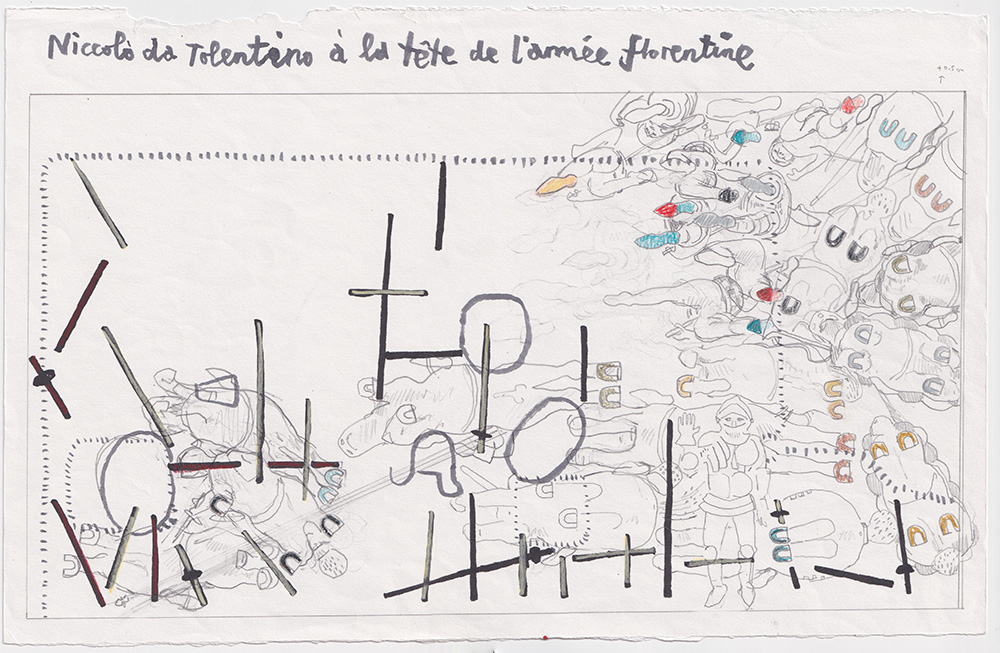 Niccolò da Tolentino à la tête de l'armée florentine